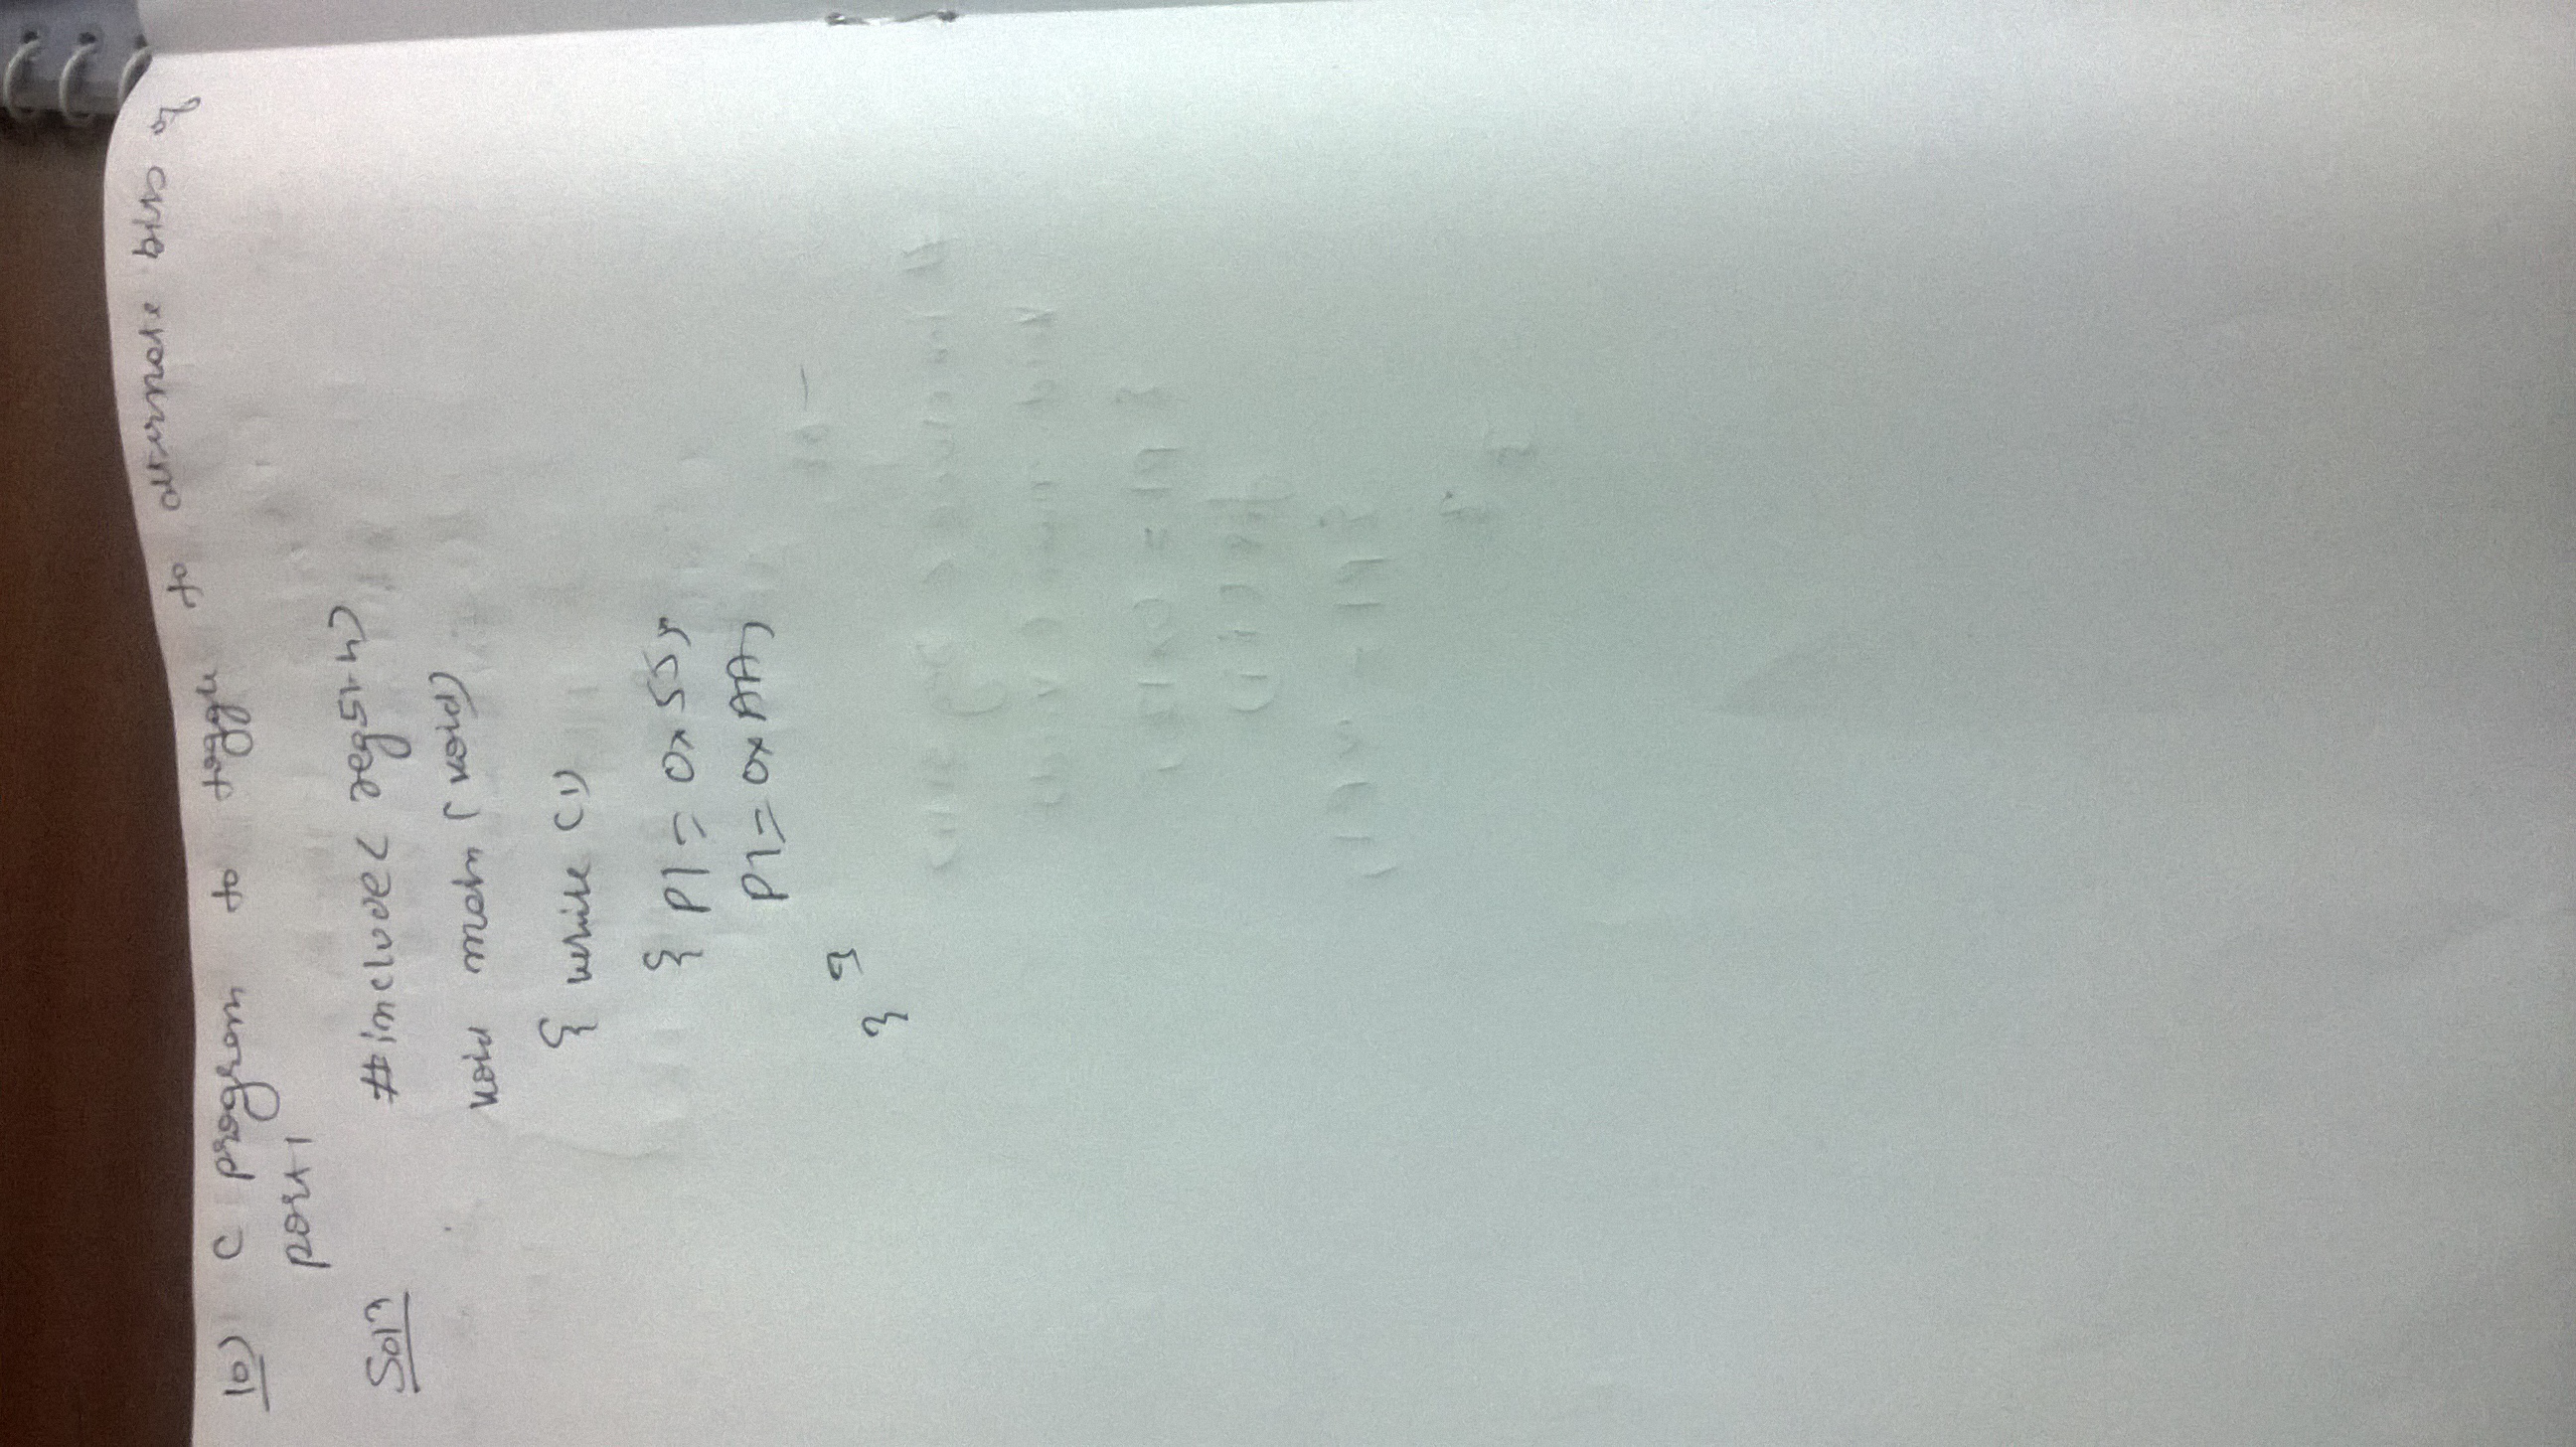 10) C program to toggle to alternate bits of
port 1
Soln #include< reg51.h>
void main (void)
{ while (1)
{ P1 = 0x55;
P1 = 0xAA;
}
}